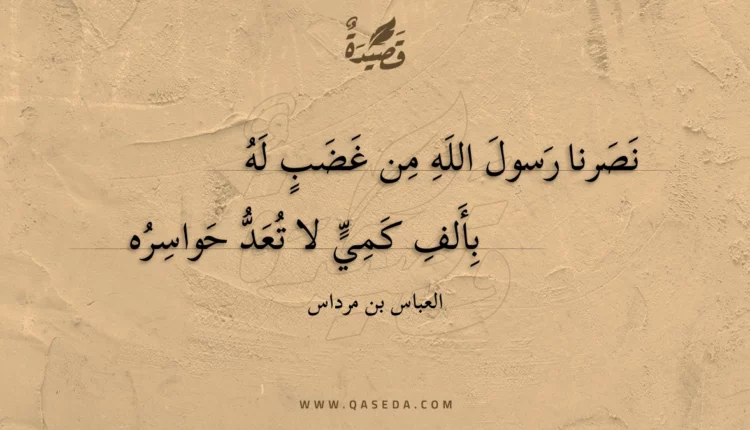 قَصيدَةٌ
نَصَرنا رَسولَ اللَهِ مِن غَضَبٍ لَهُ
بِأَلفِ كَمِيٍّ لا تُعَدُّ حَواسِرُه
العباس بن مرداس
WWW.QASEDA.COM